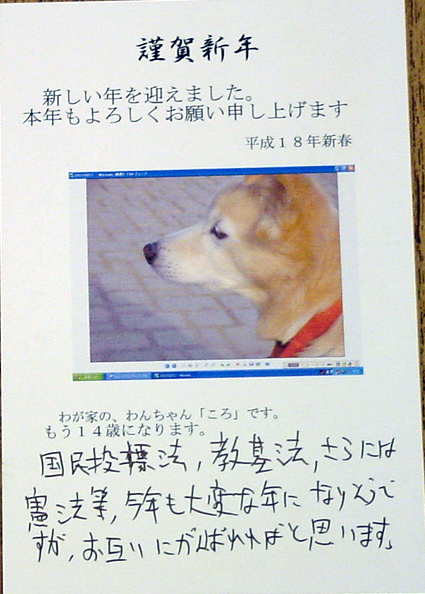 謹賀新年
新しい年を迎えました。
本年もよろしくお願い申し上げます
平成18年新春
わが家の、わんちゃん「ころ」です。
もう14歳になります。
国民投票法,教基法,さらには
憲法等,今年も大変な年になりそうで
すが,お互いにがんばれればと思います。